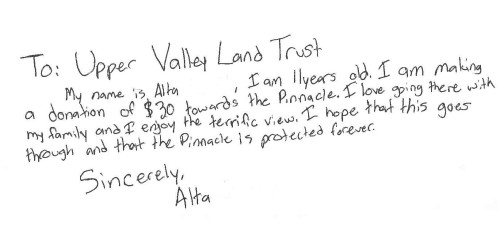 To: Upper Valley Land Trust
My name is Alta , I am 11 years old. I am making
a donation of $30 towards the Pinnacle. I love going there with
my family and I enjoy the terrific view. I hope that this goes
through and that the Pinnacle is protected forever.
Sincerely,
Alta